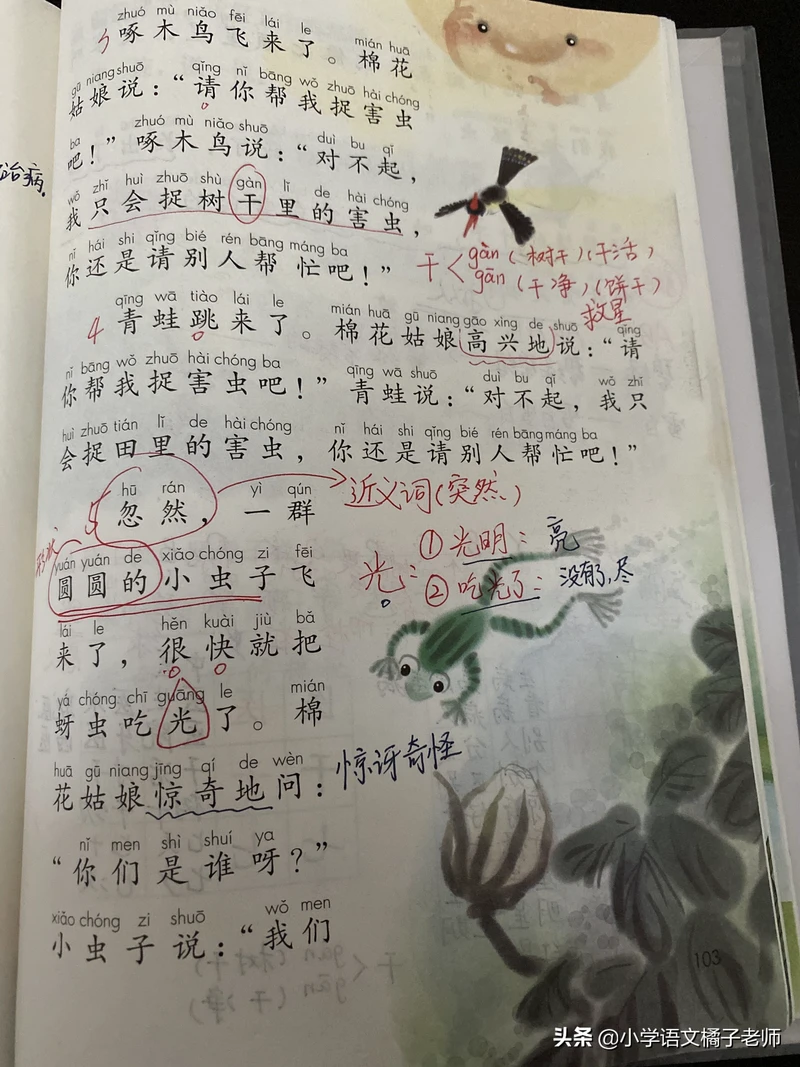 zhuó mù niǎo fēi lái le mián huā
啄木鸟飞来了。棉花
gū niang shuō qǐng nǐ bāng wǒ zhuō hài chóng
姑娘说：“请你帮我捉害虫
ba zhuó mù niǎo shuō duì bu qǐ
吧！”啄木鸟说：“对不起，
治病.
wǒ zhǐ huì zhuō shù gàn lǐ de hài chóng
我只会捉树干里的害虫，
nǐ hái shi qǐng bié rén bāng máng ba
你还是请别人帮忙吧！”
干 gàn（树干）（干活）
gān（干净）（饼干）
救星
qīng wā tiào lái le mián huā gū niang gāo xìng de shuō qǐng
4 青蛙跳来了。棉花姑娘高兴地说：“请
nǐ bāng wǒ zhuō hài chóng ba qīng wā shuō duì bu qǐ wǒ zhǐ
你帮我捉害虫吧！”青蛙说：“对不起，我只
huì zhuō tián lǐ de hài chóng nǐ hái shi qǐng bié rén bāng máng ba
会捉田里的害虫，你还是请别人帮忙吧！”
hū rán yì qún
5 忽然，一群
近义词（突然）
yuán yuán de xiǎo chóng zi fēi
圆圆的小虫子飞
光：①光明：亮
②吃光了：没有了，尽
lái le hěn kuài jiù bǎ
来了，很快就把
yá chóng chī guāng le mián
蚜虫吃光了。棉
huā gū niang jīng qí de wèn
花姑娘惊奇地问：
惊讶奇怪
nǐ men shì shuí ya
“你们是谁呀？”
xiǎo chóng zi shuō wǒ men
小虫子说：“我们
103
头条 @小学语文橘子老师